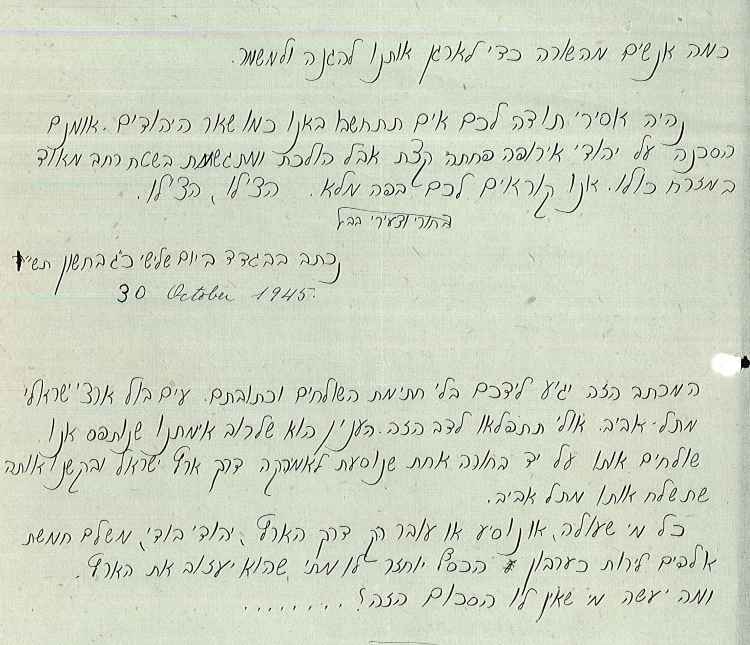 כמה אנשים מהשורה כדי לארגן אותנו להגנה ולמשמר.
נהיה אסירי תודה לכם אים תתחשבו באנו כמו שאר היהודים. אומנם
הסכנה על יהודי אירופה פחתה קצת אבל הולכת ומתגשמת בשטח רחב מאוד
במזרח כולו. אנו קוראים לכם בפה מלא. הצילו, הצילו.
בחורי וצעירי בבל
נכתב בבגדד ביום שלישי כ"ג בחשון תש"ו
30 October 1945.
המכתב הזה יגיע לידכם בלי חתימת השולחים וכתובתם. עים בול ארצי ישראלי
מתל-אביב. אולי תתפלאו לדב הזה. הענין הוא שלרוב אימתנו שנתפס אנו
שולחים אותו על יד בחורה אחת שנוסעת לאמריקה דרך ארץ ישראל ובקשנו אותה
שתשלח אותו מתל אביב.
כל מי שעולה, או נוסיע או עובר רק דרך הארץ, יהודי בודי, משלם חמשת
אלפים לירות כערבון הכסל יוחזר לו מתי שהוא יעזוב את הארץ.
ומה יעשה מי שאין לו הסכום הזה?........